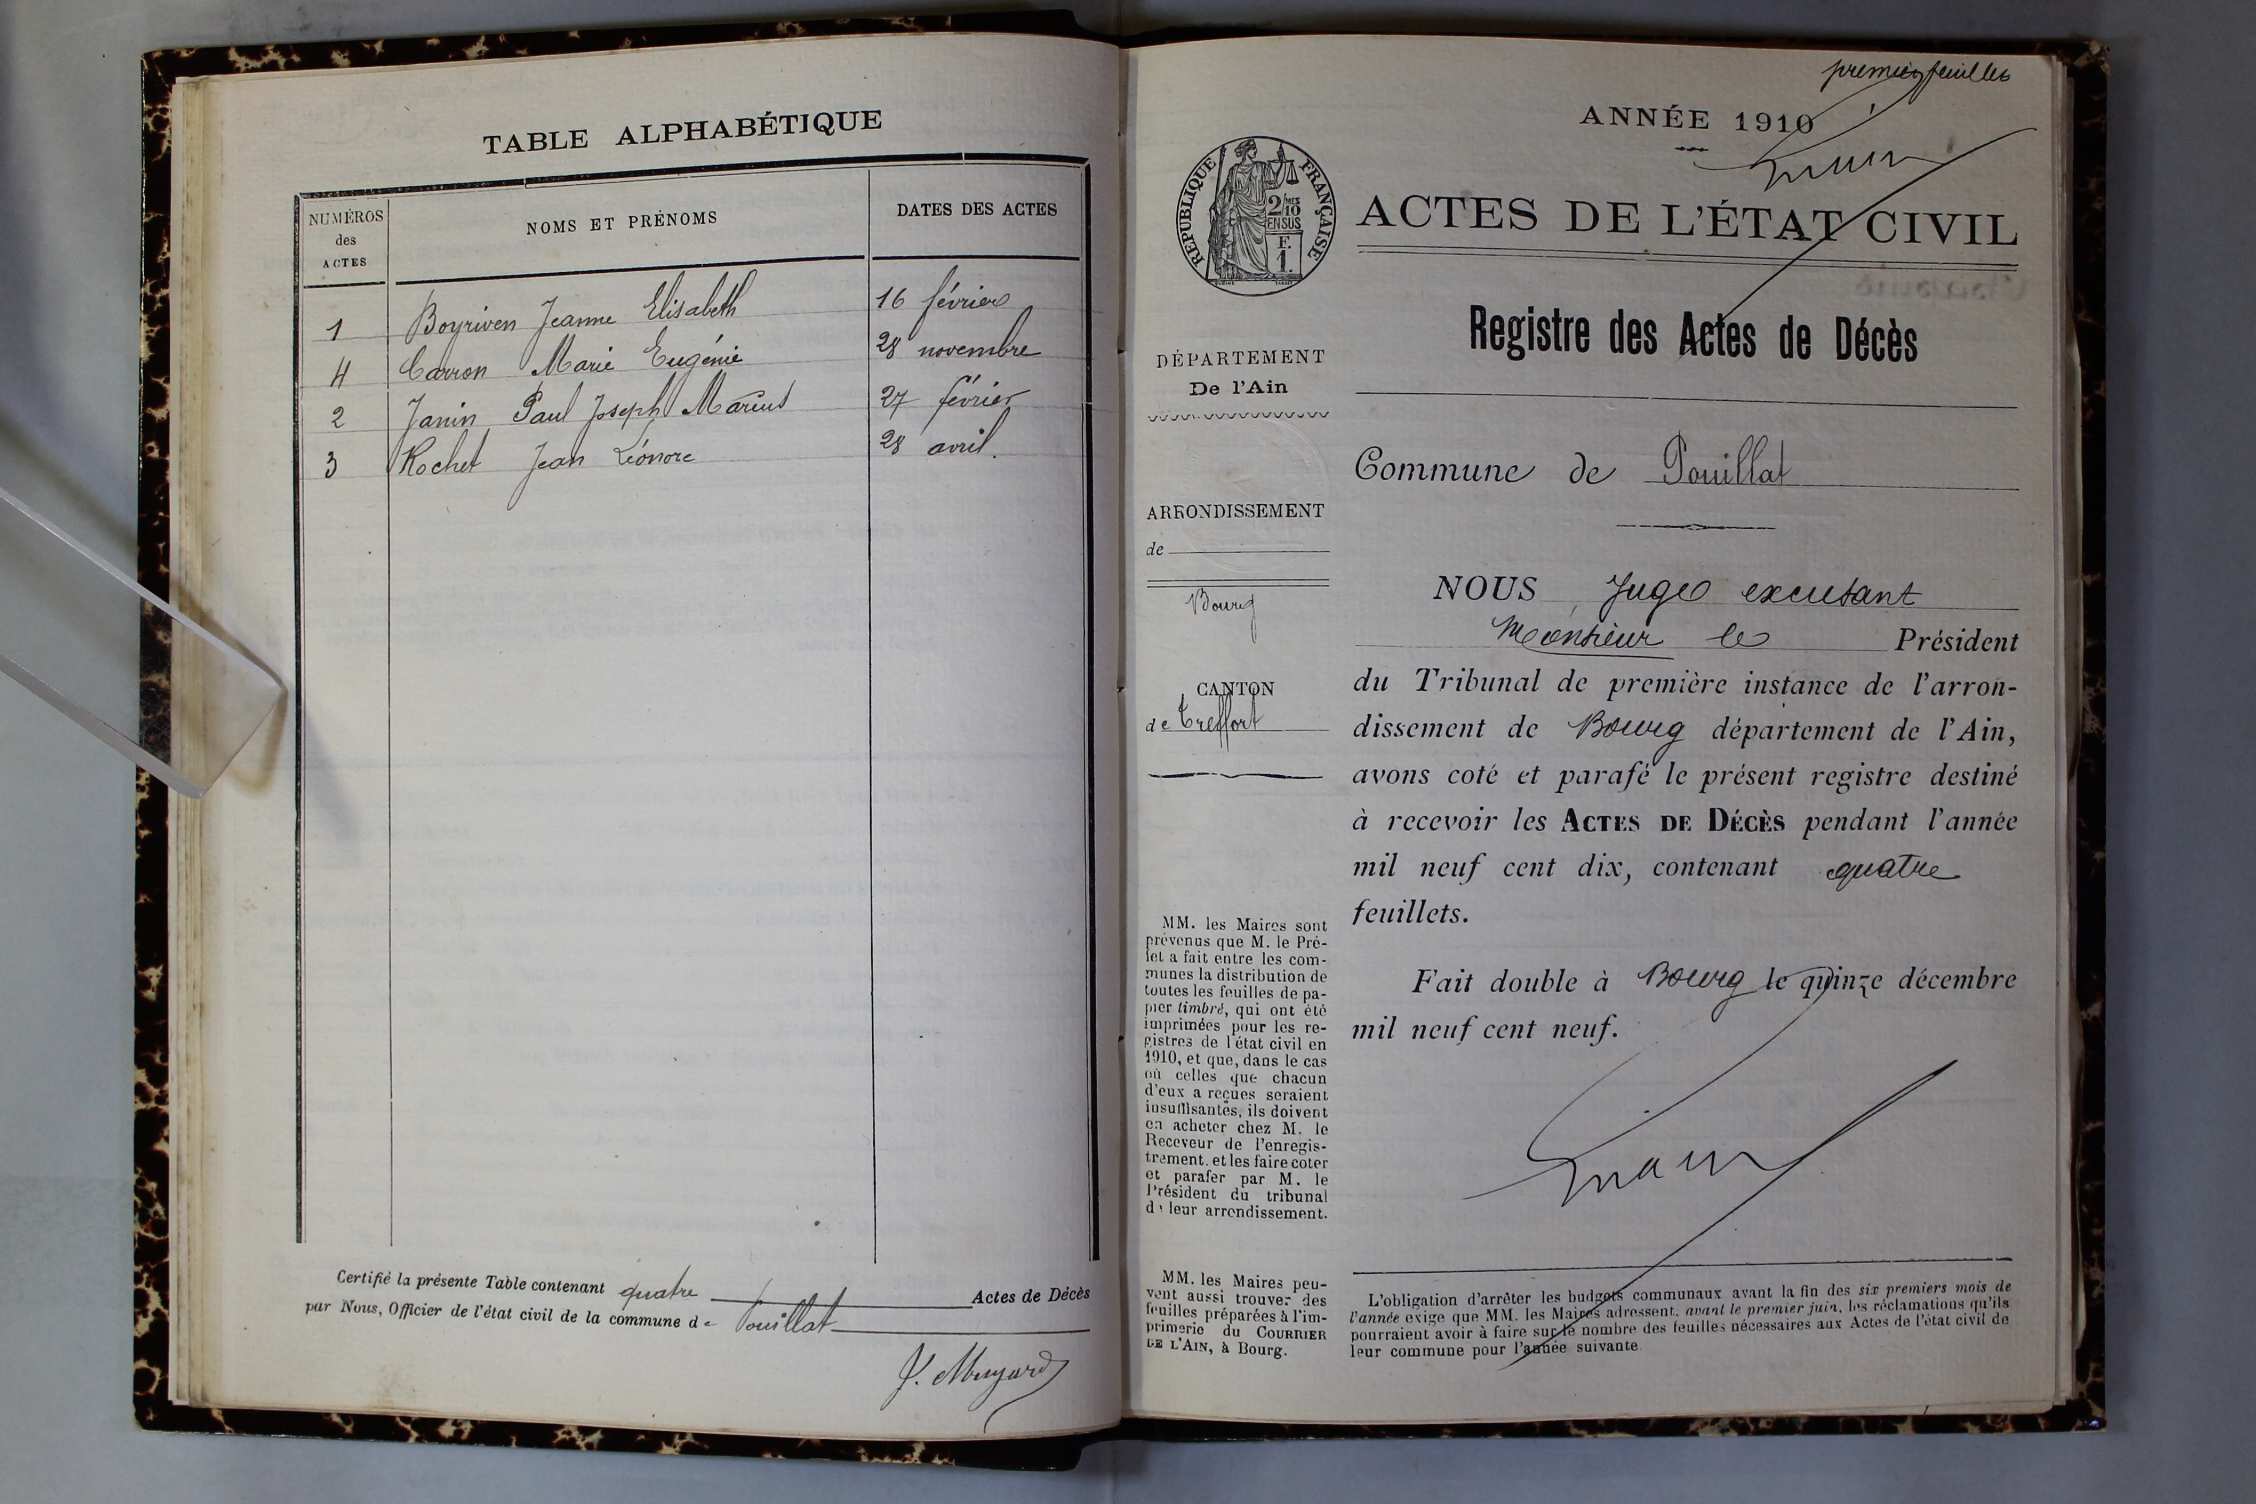 TABLE ALPHABÉTIQUE
NUMÉROS des ACTES
NOMS ET PRÉNOMS
DATES DES ACTES
1 Boyriven Jeanne Elisabeth 16 février
4 Carron Marie Eugénie 28 novembre
2 Janin Paul Joseph Marius 27 février
3 Rochet Jean Léonore 28 avril.
Certifié la présente Table contenant quatre Actes de Décès
par Nous, Officier de l'état civil de la commune de Pouillat
premier feuillet
ANNÉE 1910
RÉPUBLIQUE FRANÇAISE
2/10 MES
EN SUS
F.
1.
ACTES DE L'ÉTAT CIVIL
Registre des Actes de Décès
DÉPARTEMENT
De l'Ain
ARRONDISSEMENT
de
Bourg
CANTON
de Treffort
Commune de Pouillat
NOUS Juge excusant
Monsieur le Président
du Tribunal de première instance de l'arron-
dissement de Bourg département de l'Ain,
avons coté et parafé le présent registre destiné
à recevoir les ACTES DE DÉCÈS pendant l'année
mil neuf cent dix, contenant quatre
feuillets.
Fait double à Bourg le quinze décembre
mil neuf cent neuf.
MM. les Maires sont
prévenus que M. le Pré-
fet a fait entre les com-
munes la distribution de
toutes les feuilles de pa-
pier timbré, qui ont été
imprimées pour les re-
gistres de l'état civil en
1910, et que, dans le cas
où celles que chacun
d'eux a reçues seraient
insuffisantes, ils doivent
en acheter chez M. le
Receveur de l'enregis-
trement. et les faire coter
et parafer par M. le
Président du tribunal
de leur arrondissement.
MM. les Maires peu-
vent aussi trouver des
feuilles préparées à l'im-
primerie du COURRIER
DE L'AIN, à Bourg.
L'obligation d'arrêter les budgets communaux avant la fin des six premiers mois de
l'année exige que MM. les Maires adressent, avant le premier juin, les réclamations qu'ils
pourraient avoir à faire sur le nombre des feuilles nécessaires aux Actes de l'état civil de
leur commune pour l'année suivante.